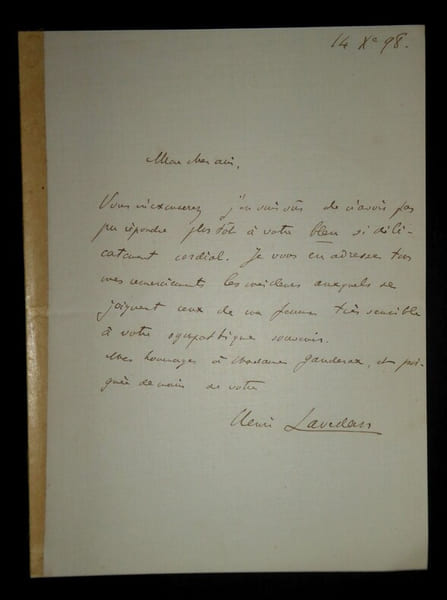 14 Xe 98.
Mon cher ami,
Vous m'excuserez j'en suis sûr de n'avoir pas
pu répondre plus tôt à votre bleu si déli-
catement cordial. Je vous en adresse tous
mes remerciements les meilleurs auxquels se
joignent ceux de ma femme très sensible
à votre sympathique souvenir.
Mes hommages à Madame Ganderax, et poi-
gnée de main de votre
Henri Lavedan